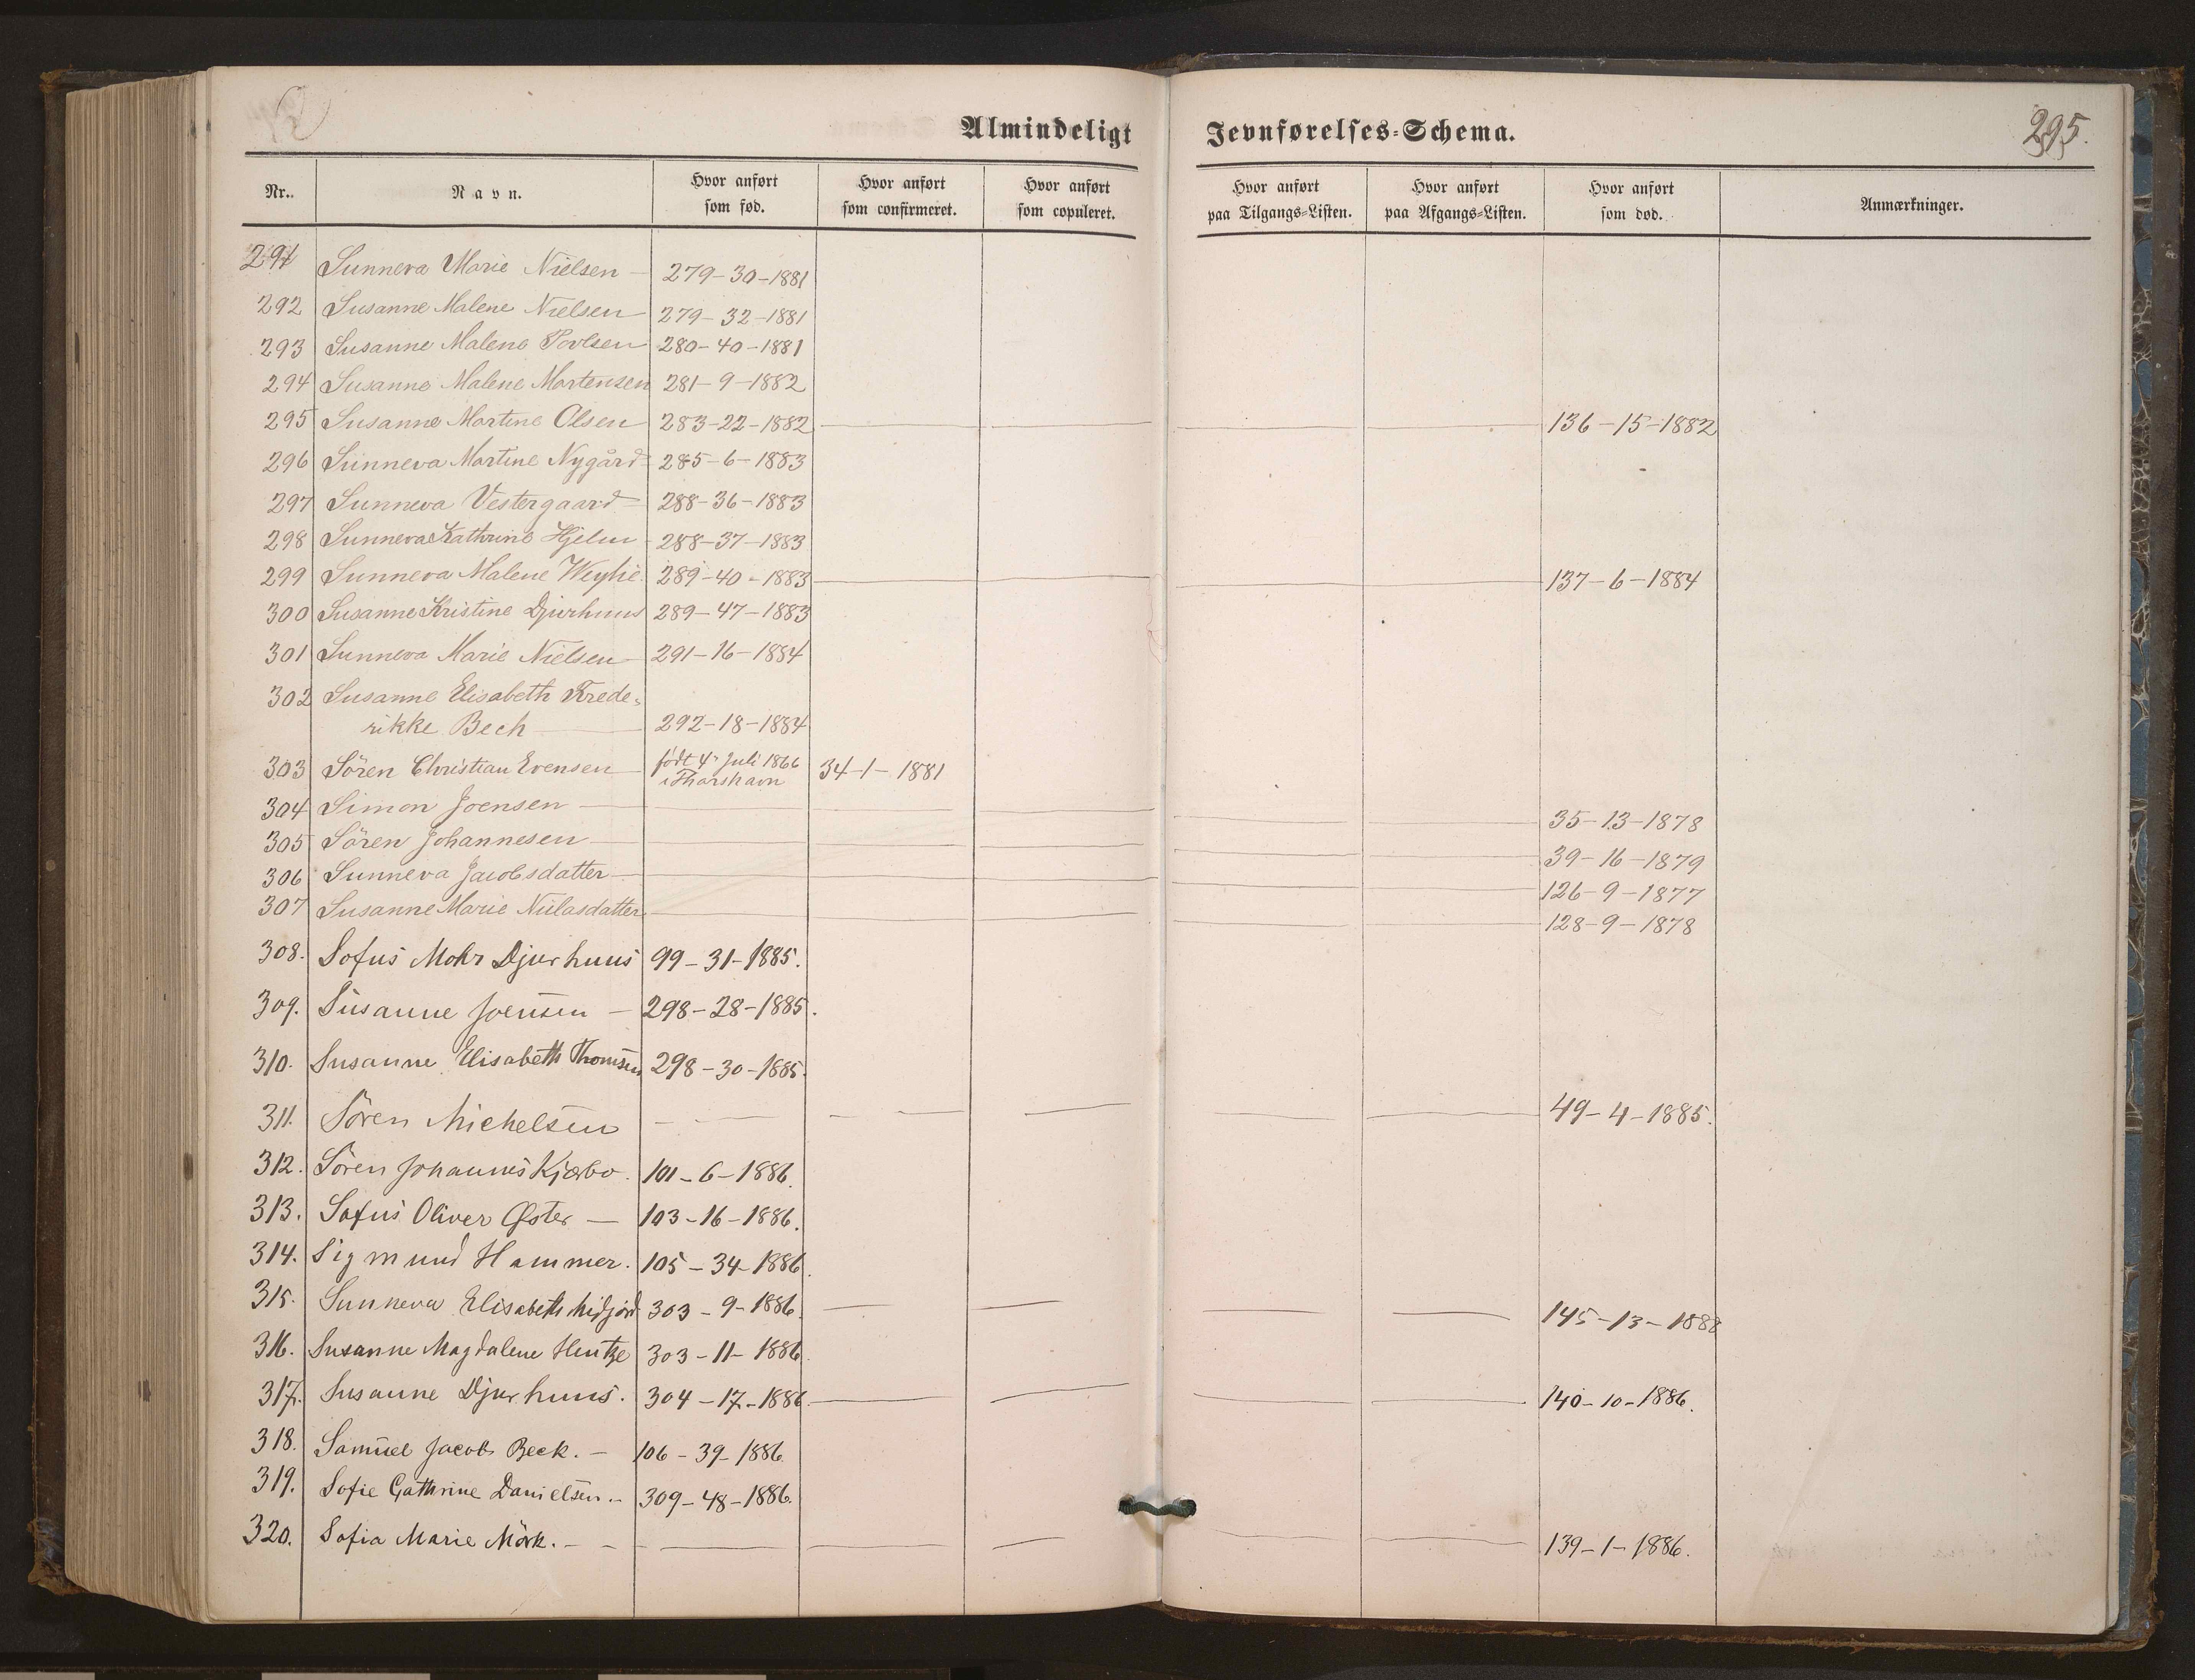 S
Almindeligt Jevnførelses=Schema.
295.
Nr..
Navn.
Hvor anført
som fød.
Hvor anført
som confirmeret.
Hvor anført
som copuleret.
Hvor anført
paa Tilgangs=Listen.
Hvor anført
paa Afgangs=Listen.
Hvor anført
som død.
Anmærkninger.
291 Sunneva Marie Nielsen — 279-30-1881
292 Susanne Malene Nielsen — 279-32-1881
293 Susanne Malene Povlsen 280-40-1881
294 Susanne Malene Mortensen 281-9-1882
295 Susanne Martine Olsen 283-22-1882 — — — — 136-15-1882
296 Sunneva Martine Nygård 285-6-1883
297 Sunneva Vestergaard — 288-36-1883
298 Sunneva Kathrine Hjelm 288-37-1883
299 Sunneva Malene Weyhe 289-40-1883 — — — — 137-6-1884
300 Susanne Kristine Djurhuus 289-47-1883
301 Sunneva Marie Nielsen — 291-16-1884
302 Susanne Elisabeth Frede=
rikke Bech — 292-18-1884
303 Sören Christian Evensen — født 4' Juli 1866 34-1-1881
i Thorshavn
304 Simon Joensen — — — — — — 35-13-1878
305 Sören Johannesen — — — — — — 39-16-1879
306 Sunneva Jacobsdatter — — — — — — 126-9-1877
307 Susanne Marie Niclasdatter — — — — — 128-9-1878
308. Sofus Mohr Djurhuus 99-31-1885.
309. Susanne Joensen — 298-28-1885.
310. Susanne Elisabeth Thomsen 298-30-1885.
311. Sören Michelsen — — — — — 49-4-1885.
312. Sören Johannes Kjærbo. 101-6-1886.
313. Sofus Oliver Øster — 103-16-1886.
314. Sigmund Hammer. 105-34-1886.
315. Sunneva Elisabeth Midjord 303-9-1886. — — — — 145-13-1888
316. Susanne Magdalene Hentze 303-11-1886.
317. Susanne Djurhuus. 304-17-1886 — — — — 140-10-1886.
318. Samuel Jacob Beck. — 106-39-1886.
319. Sofie Cathrine Danielsen. - 309-48-1886.
320. Sofia Marie Mörk. - - — — — — — 139-1-1886.